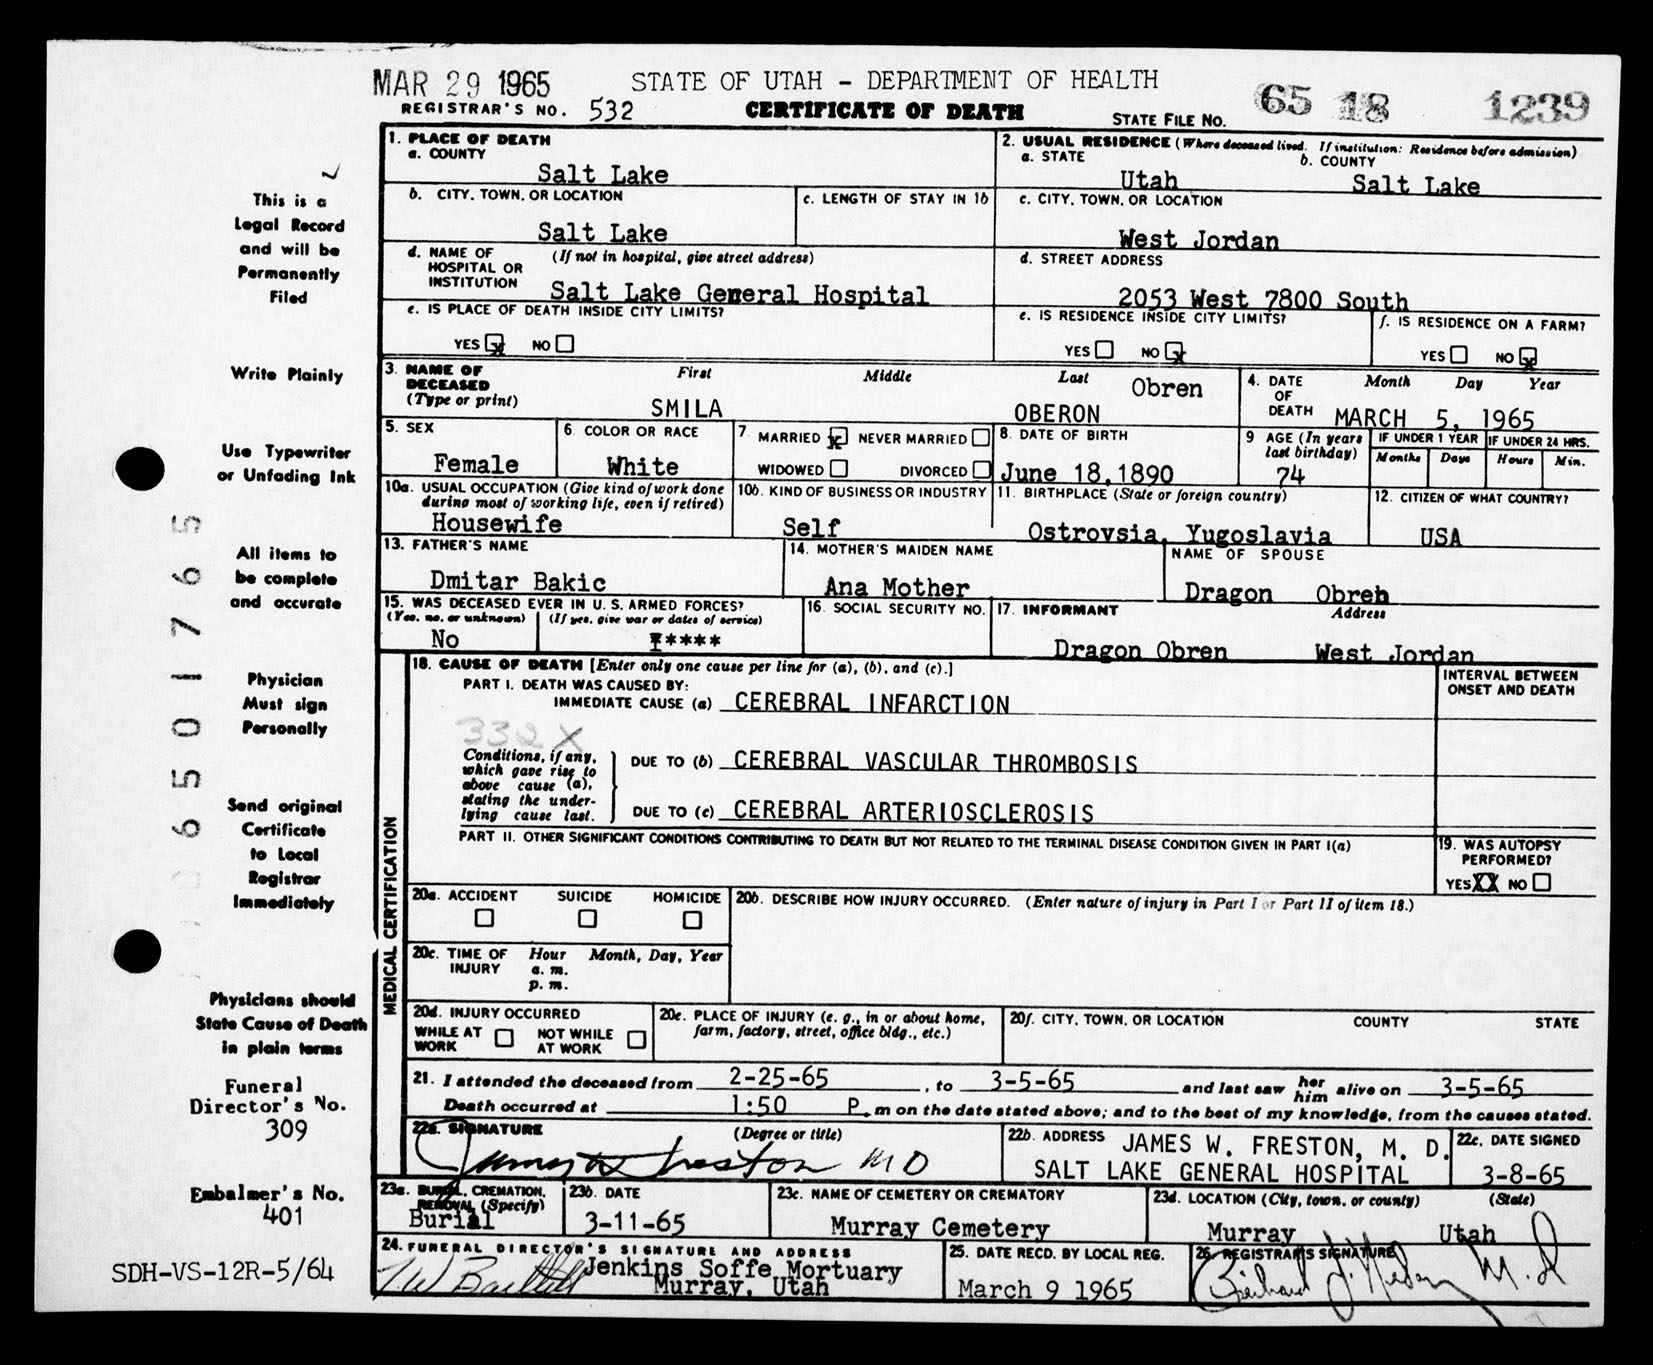 MAR 29 1965 STATE OF UTAH - DEPARTMENT OF HEALTH 65 18 1239
REGISTRAR'S NO. 532 CERTIFICATE OF DEATH STATE FILE NO.
This is a
Legal Record
and will be
Permanently
Filed
Write Plainly
Use Typewriter
or Unfading Ink
All items to
be complete
and accurate
Physician
Must sign
Personally
Send original
Certificate
to Local
Registrar
Immediately
Physicians should
State Cause of Death
in plain terms
Funeral
Director's No.
309
Embalmer's No.
401
SDH-VS-12R-5/64
06501765
1. PLACE OF DEATH
a. COUNTY
Salt Lake
2. USUAL RESIDENCE (Where deceased lived. If institution: Residence before admission)
a. STATE b. COUNTY
Utah Salt Lake
b. CITY, TOWN, OR LOCATION c. LENGTH OF STAY IN 1b
Salt Lake
c. CITY, TOWN, OR LOCATION
West Jordan
d. NAME OF (If not in hospital, give street address)
HOSPITAL OR
INSTITUTION Salt Lake General Hospital
d. STREET ADDRESS
2053 West 7800 South
e. IS PLACE OF DEATH INSIDE CITY LIMITS?
YES x NO
e. IS RESIDENCE INSIDE CITY LIMITS? f. IS RESIDENCE ON A FARM?
YES NO x YES NO x
3. NAME OF First Middle Last Obren
DECEASED
(Type or print) SMILA OBERON
4. DATE Month Day Year
OF
DEATH MARCH 5, 1965
5. SEX
Female
6. COLOR OR RACE
White
7. MARRIED x NEVER MARRIED
WIDOWED DIVORCED
8. DATE OF BIRTH
June 18,1890
9 AGE (In years
last birthday)
74
IF UNDER 1 YEAR IF UNDER 24 HRS.
Months Days Hours Min.
10a. USUAL OCCUPATION (Give kind of work done
during most of working life, even if retired)
Housewife
10b. KIND OF BUSINESS OR INDUSTRY
Self
11. BIRTHPLACE (State or foreign country)
Ostrovsia, Yugoslavia
12. CITIZEN OF WHAT COUNTRY?
USA
13. FATHER'S NAME
Dmitar Bakic
14. MOTHER'S MAIDEN NAME
Ana Mother
NAME OF SPOUSE
Dragon Obren
15. WAS DECEASED EVER IN U. S. ARMED FORCES?
(Yes, no, or unknown) (If yes, give war or dates of service)
No *****
16. SOCIAL SECURITY NO.
17. INFORMANT Address
Dragon Obren West Jordan
MEDICAL CERTIFICATION
18. CAUSE OF DEATH [Enter only one cause per line for (a), (b), and (c).]
INTERVAL BETWEEN
ONSET AND DEATH
PART I. DEATH WAS CAUSED BY:
IMMEDIATE CAUSE (a) CEREBRAL INFARCTION
332 X
Conditions, if any,
which gave rise to
above cause (a),
stating the under-
lying cause last.
DUE TO (b) CEREBRAL VASCULAR THROMBOSIS
DUE TO (c) CEREBRAL ARTERIOSCLEROSIS
PART II. OTHER SIGNIFICANT CONDITIONS CONTRIBUTING TO DEATH BUT NOT RELATED TO THE TERMINAL DISEASE CONDITION GIVEN IN PART I(a)
19. WAS AUTOPSY
PERFORMED?
YES XX NO
20a. ACCIDENT SUICIDE HOMICIDE
20b. DESCRIBE HOW INJURY OCCURRED. (Enter nature of injury in Part I or Part II of item 18.)
20c. TIME OF Hour Month, Day, Year
INJURY a. m.
p. m.
20d. INJURY OCCURRED
WHILE AT NOT WHILE
WORK AT WORK
20e. PLACE OF INJURY (e. g., in or about home,
farm, factory, street, office bldg., etc.)
20f. CITY, TOWN, OR LOCATION COUNTY STATE
21. I attended the deceased from 2-25-65, to 3-5-65 and last saw her him alive on 3-5-65
Death occurred at 1:50 P.m on the date stated above; and to the best of my knowledge, from the causes stated.
22a. SIGNATURE (Degree or title)
James W Freston MD
22b. ADDRESS JAMES W. FRESTON, M. D.
SALT LAKE GENERAL HOSPITAL
22c. DATE SIGNED
3-8-65
23a. BURIAL, CREMATION,
REMOVAL (Specify)
Burial
23b. DATE
3-11-65
23c. NAME OF CEMETERY OR CREMATORY
Murray Cemetery
23d. LOCATION (City, town, or county) (State)
Murray Utah
24. FUNERAL DIRECTOR'S SIGNATURE AND ADDRESS
Jenkins Soffe Mortuary
Murray, Utah
25. DATE RECD. BY LOCAL REG.
March 9 1965
26. REGISTRAR'S SIGNATURE
M.D